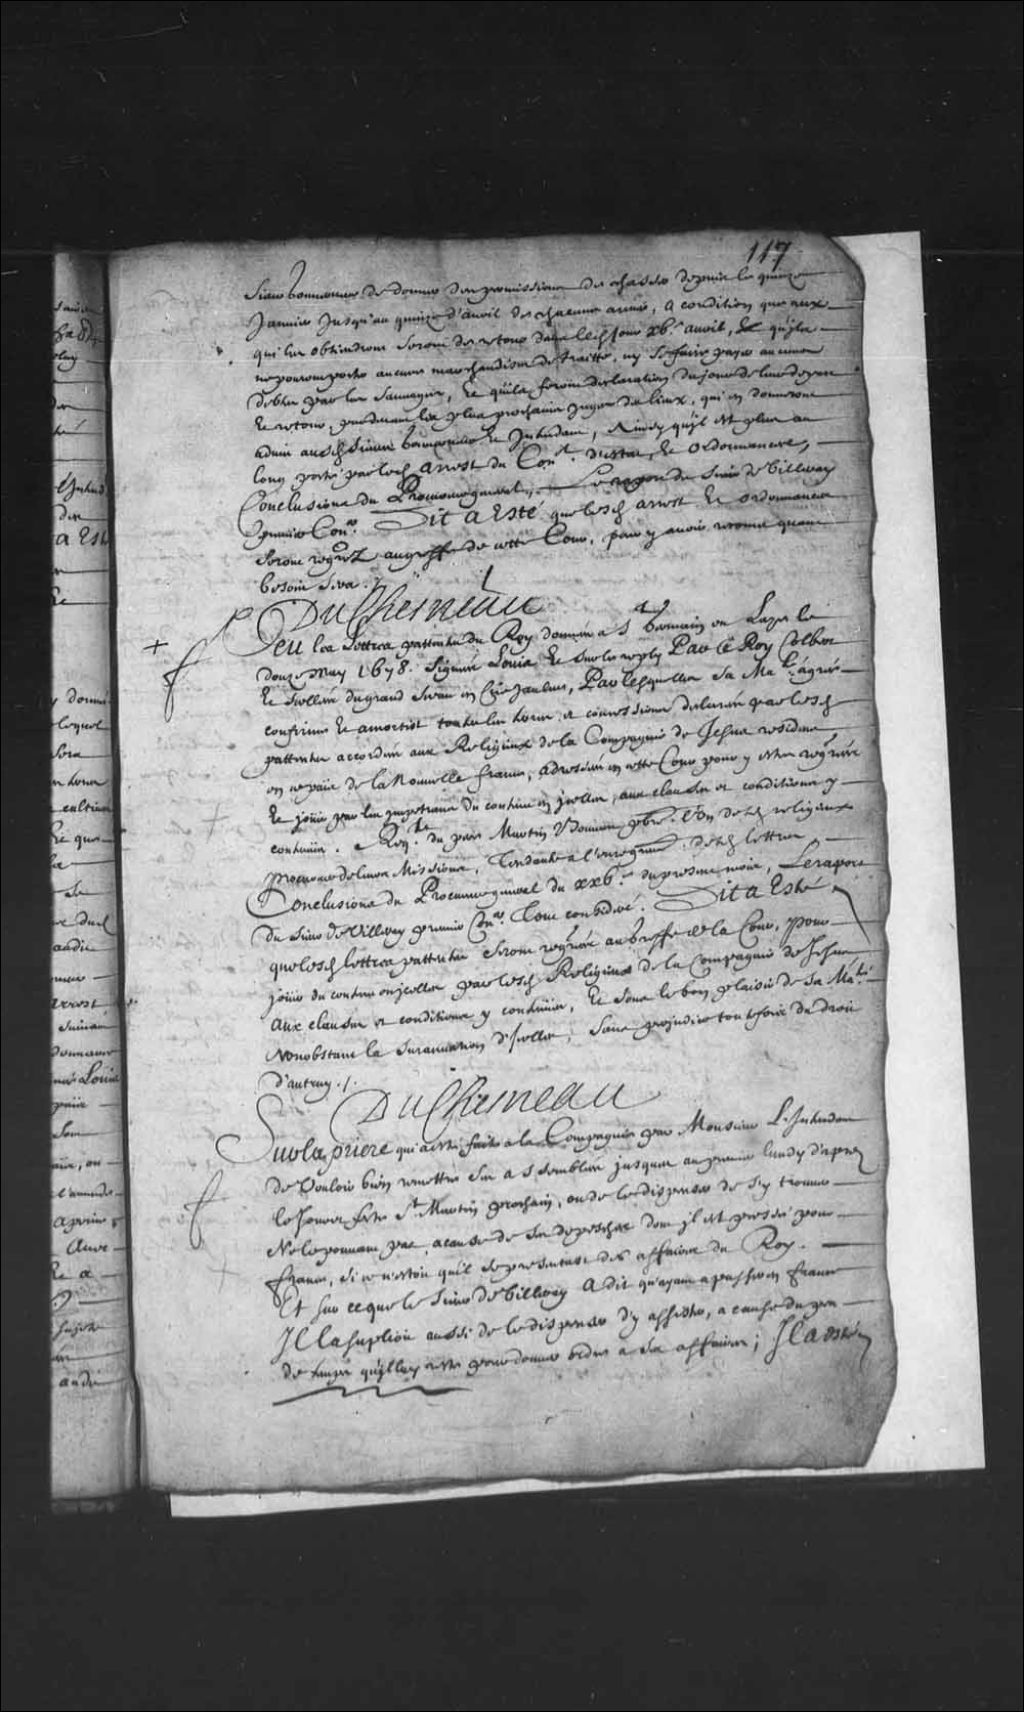 117
Sieur Gouverneur de donner des permissions de chasse depuis le quinze
Janvier Jusqu'au quinze d'avril de chacune année, a condition que ceux
qui les obtiendront seront de retour dans led. jour xbe avril, & qu'ils
ne pouront porter aucunes marchandises de traitte, ny se faire payer aucunes
debtes par les Sauvages, Et qu'ils feront declaration du jour de leur depart
Et retour, pardevant les plus prochains juges des lieux, qui en donneront
advis ausd. Sieurs Gouverneur Et Intendant, Ainsy qu'il est plus au
long porté par lesd. arrest du Con.el d'estat, Et ordonnances,
Conclusions du Procureur general, Le raport du Sieur de Villeray
premier Con.er Dit a Esté que lesd. arrest Et ordonnances
seront regrez au greffe de cette Cour, pour y avoir recours quand
besoin sera ./.
DuChesneau
Veu les Lettres pattentes du Roy données a St Germain en Laye le
douze may 1678. Signées Louis Et sur le reply Par le Roy Colbert
Et scellées du grand sceau en Cire jaulne, Par lesquelles Sa Ma.té agrée
confirme Et amortist toutes les terres et concessions declarées par lesd.
pattentes accordées aux Religieux de la Compagnie de Jesus residens
en ce païs de la Nouvelle france, adressées en cette Cour pour y estre regrées
Et jouir par les impetrans du contenu en icelles, aux clauses et conditions y
contenües. Reqte du pere Martin Bouvart pbre. L'un desd. religieux
procureur de leurs Missions, Tendante a l'enregremt desd. lettres,
Conclusions du Procureur general du xxbe du present mois, Le raport
du Sieur de Villeray premier Con.er Tout consideré. Dit a Esté
que lesd. lettres pattentes seront regrées au Greffe de la Cour, Pour
jouir du contenu en icelles par lesd. Religieux de la Compagnie de Jesus
aux clauses et conditions y contenües, Et sous le bon plaisir de Sa Ma.té
Nonobstant la surannation d'icelles, sans prejudice toutefois du droit
d'autruy ./.
DuChesneau
Sur la priere qui a esté faite a la Compagnie par Monsieur L'Intendant
de Vouloir bien remettre Sa assemblée jusques au premier lundy d'apres
le jour et feste St Martin prochain, ou de le dispenser de s'y trouver
Ne le pouvant pas, a cause de ses depesches dont il est pressé pour
france, si ce n'estoit qu'il se presentast des affaires du Roy.
Et sur ce que le Sieur de Villeray A dit qu'ayant a passer en france
Il la suplioit aussi de le dispenser d'y assister, a cause du peu
de temps qu'il luy reste pour donner ordre a ses affaires; Il a esté